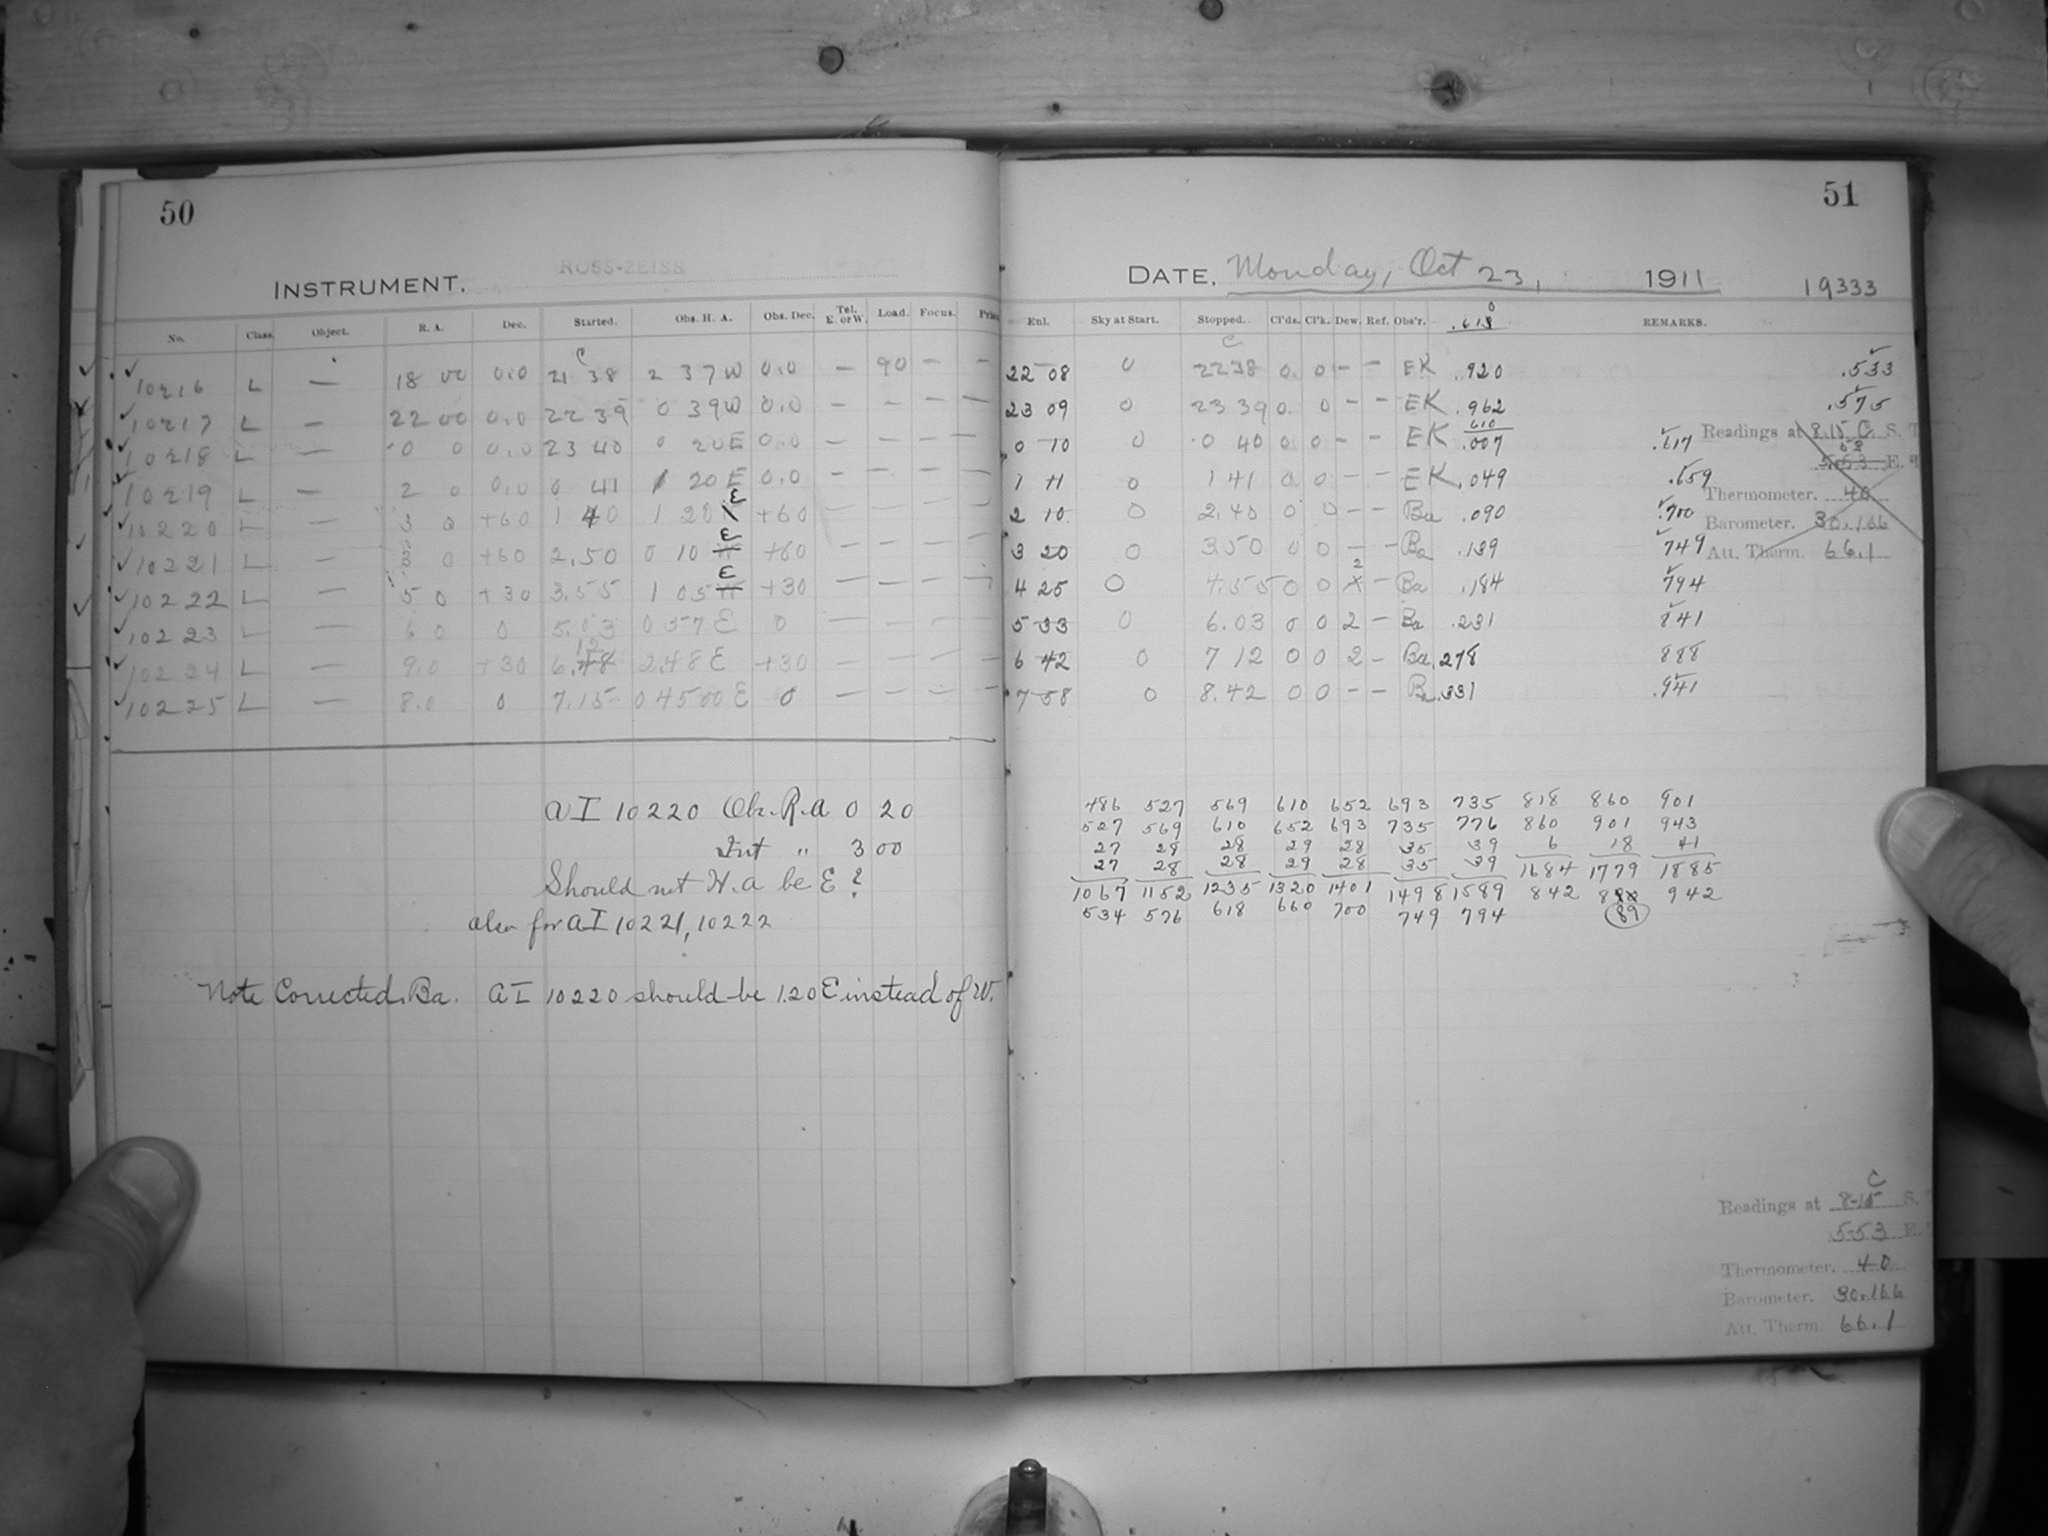 50
INSTRUMENT. ROSS-ZEISS
No. Class. Object. R. A. Dec. Started. Obs. H. A. Obs. Dec. Tel. E. or W. Load. Focus.
10216 L — 18 00 0.0 21 38 2 37 W 0.0 — 90 — —
10217 L — 22 00 0.0 22 39 0 39 W 0.0 — — — —
10218 L — 0 0 0.0 23 40 0 20 E 0.0 — — — —
10219 L — 2 0 0.0 0 41 1 20 E 0.0 — — — —
10220 L — 3 0 +60 1 40 1 20 E +60 — — — —
10221 L — 3 0 +60 2.50 0 10 E +60 — — — —
10222 L — 5 0 +30 3.55 1 05 E +30 — — — —
10223 L — 6 0 0 5.03 0 57 E 0 — — — —
10224 L — 9.0 +30 6.12 2.48 E +30 — — — —
10225 L — 8.0 0 7.15 0 45 00 E 0 — — — —
AI 10220 Ok. R.A 0 20
Int " 3 00
Should not H.A be E?
also for AI 10221, 10222
Note Corrected. Ba. AI 10220 should be 1.20 E instead of W.
51
DATE, Monday, Oct 23, 1911 19333
Enl. Sky at Start. Stopped. Cl'ds. Cl'k. Dew. Ref. Obs'r. REMARKS.
22 08 0 22 38 0 0 — — EK .920 .533
23 09 0 23 39 0 0 — — EK .962 .575
610
0 10 0 0 40 0 0 — — EK .007 .617
1 11 0 1 41 0 0 — — EK .049 .659
2 10 0 2.40 0 0 — — Ba .090 .700
3 20 0 3.50 0 0 — — Ba .139 749
4 25 0 4.55 0 0 2 — Ba .184 794
5 33 0 6.03 0 0 2 — Ba .231 841
6 42 0 7 12 0 0 2 — Ba .278 888
7 58 0 8.42 0 0 — — Ba .331 .941
Readings at 8.15 C S.
5.53 E.
Thermometer. 40
Barometer. 30.166
Att. Therm. 66.1
486 527 569 610 652 693 735 818 860 901
527 569 610 652 693 735 776 860 901 943
27 28 28 29 28 35 39 6 18 41
27 28 28 29 28 35 39 1684 1779 1885
1067 1152 1235 1320 1401 1498 1589 842 942
534 576 618 660 700 749 794 89
Readings at 8-15 C S.
5-53 E.
Thermometer. 40
Barometer. 30.166
Att. Therm. 66.1